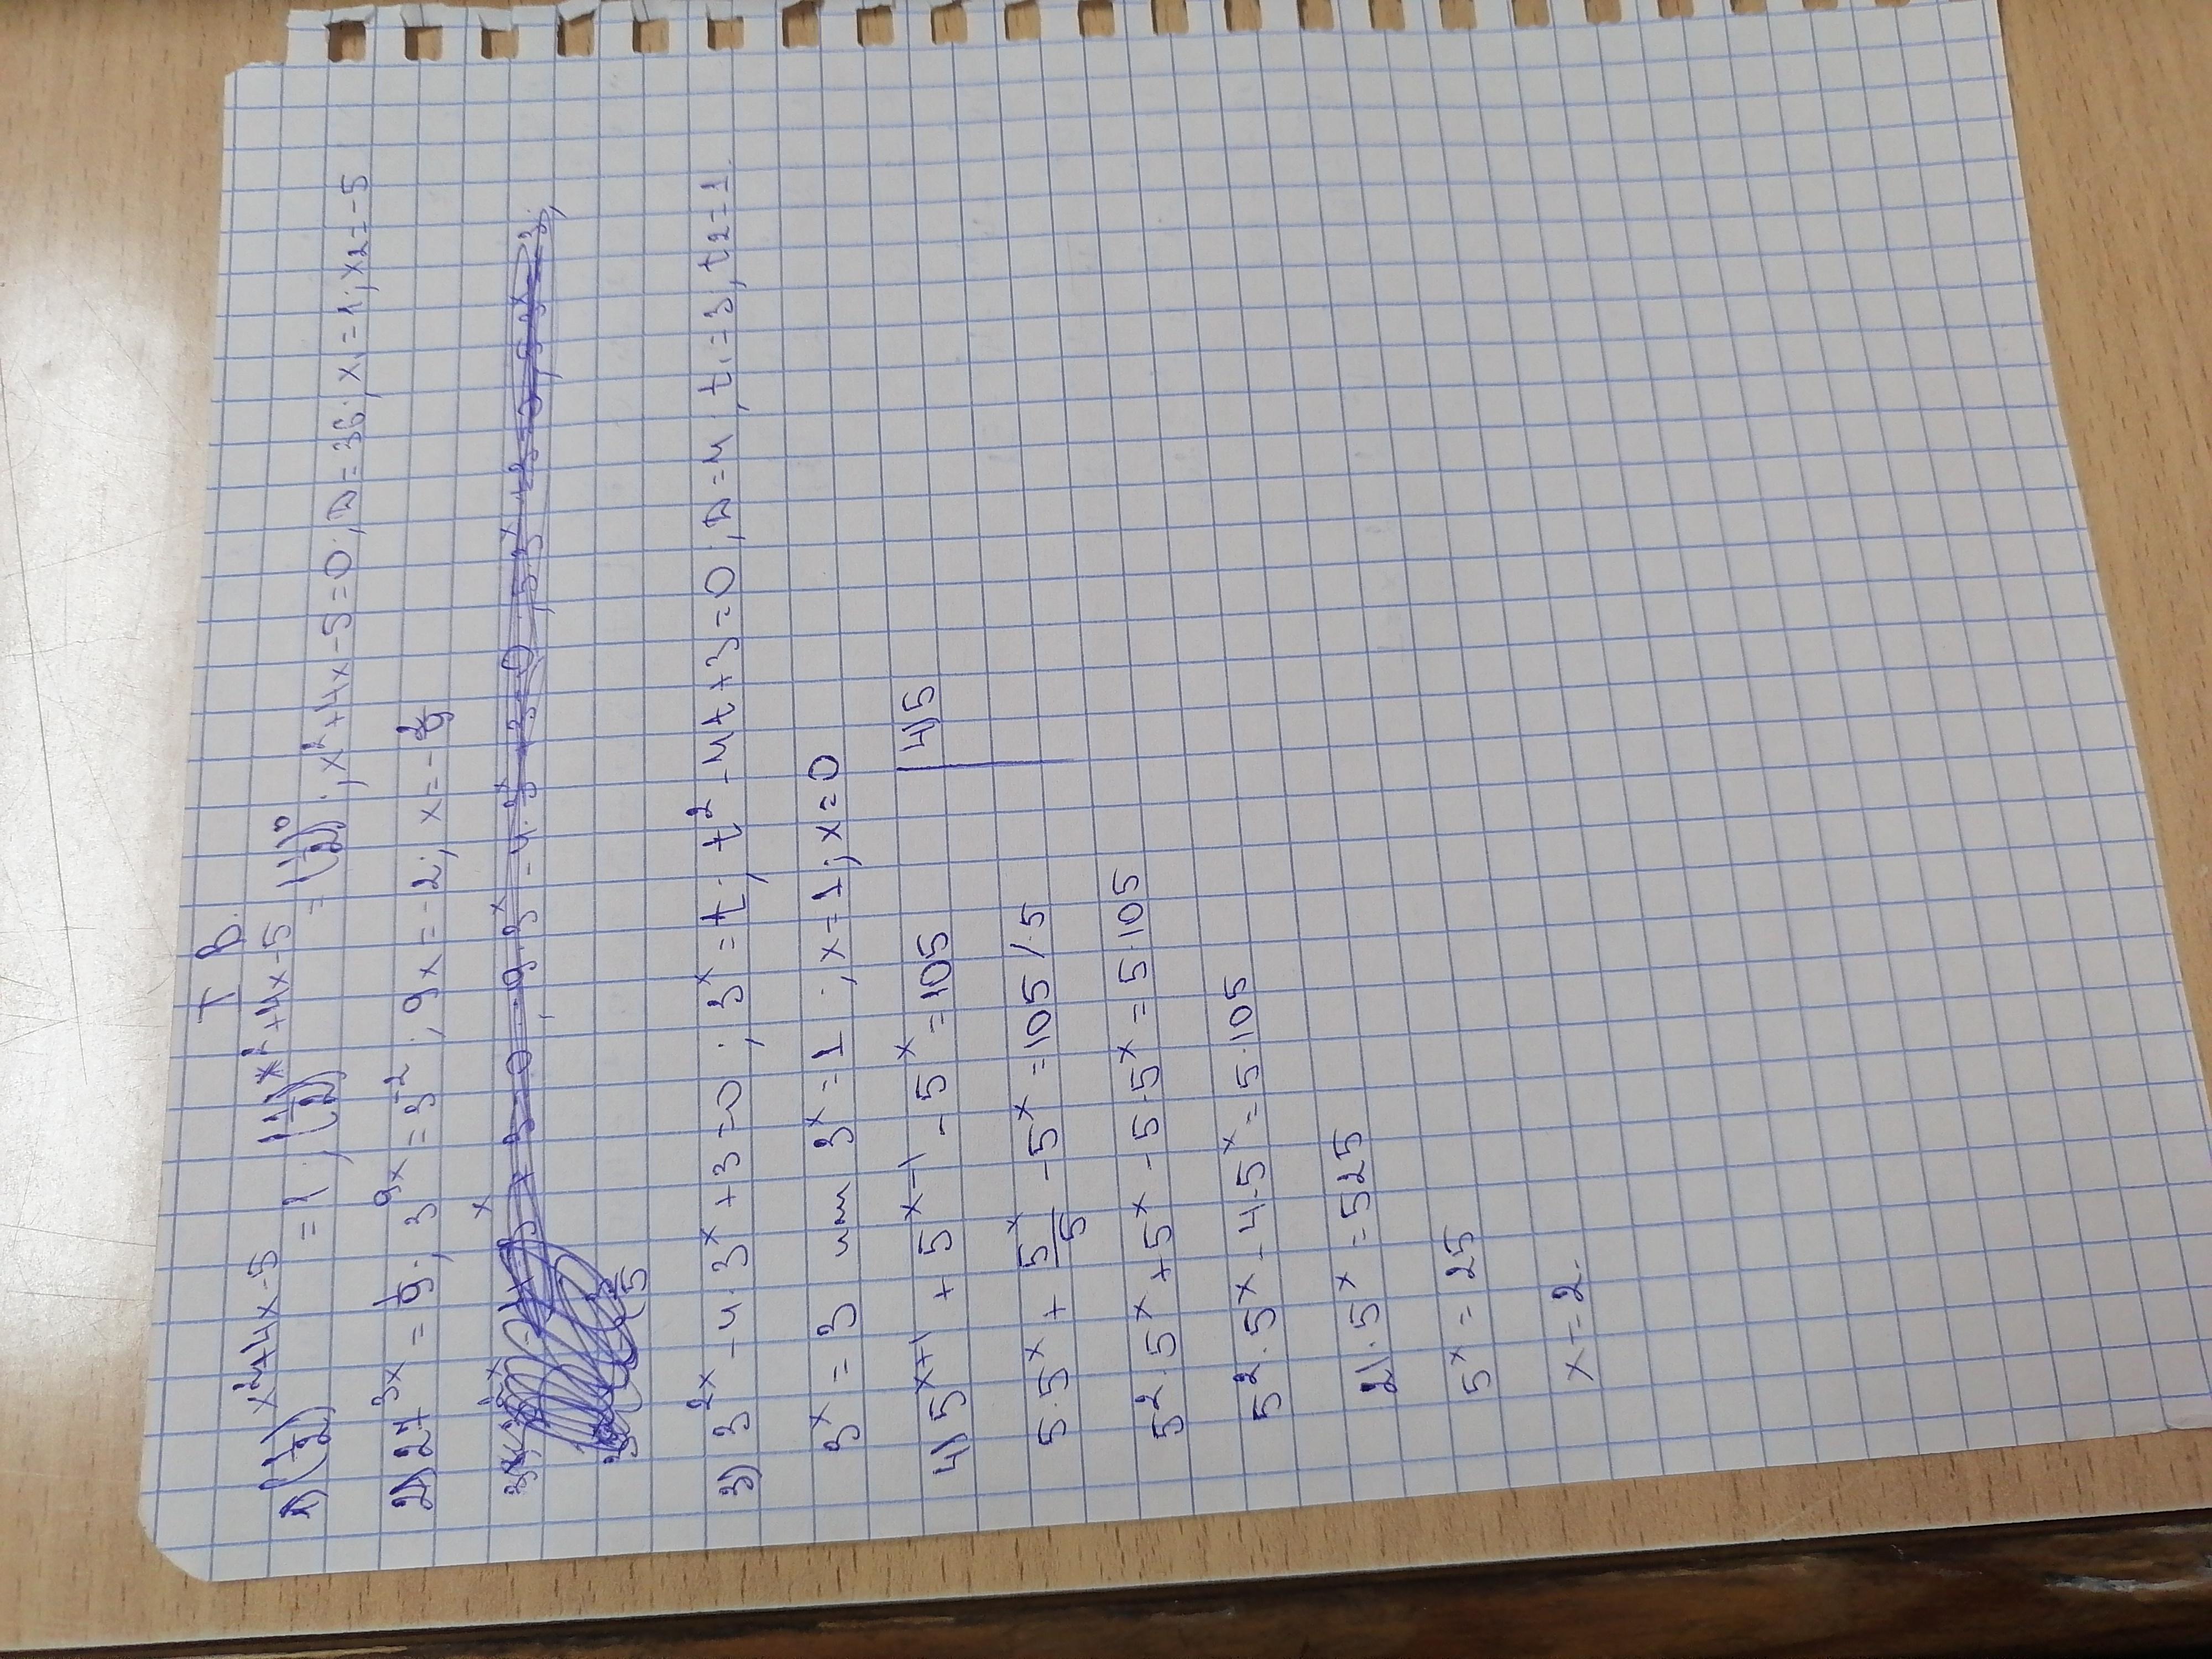 I В.
1) (1/2)^(x²+4x-5) = 1; (1/2)^(x²+4x-5) = (1/2)^0; x²+4x-5=0; D=36; x₁=1; x₂=-5
2) 27^(3x) = 1/9; 3^(9x) = 3^(-2); 9x=-2; x=-2/9
3) 3^(2x) - 4·3^x + 3=0; 3^x=t; t²-4t+3=0; D=4; t₁=3; t₂=1.
3^x = 3 или 3^x = 1; x=1; x=0
4) 5^(x+1) + 5^(x-1) - 5^x = 105 | 4) 5
5·5^x + 5^x/5 - 5^x = 105 /·5
5²·5^x + 5^x - 5·5^x = 5·105
5²·5^x - 4·5^x = 5·105
21·5^x = 525
5^x = 25
x = 2.